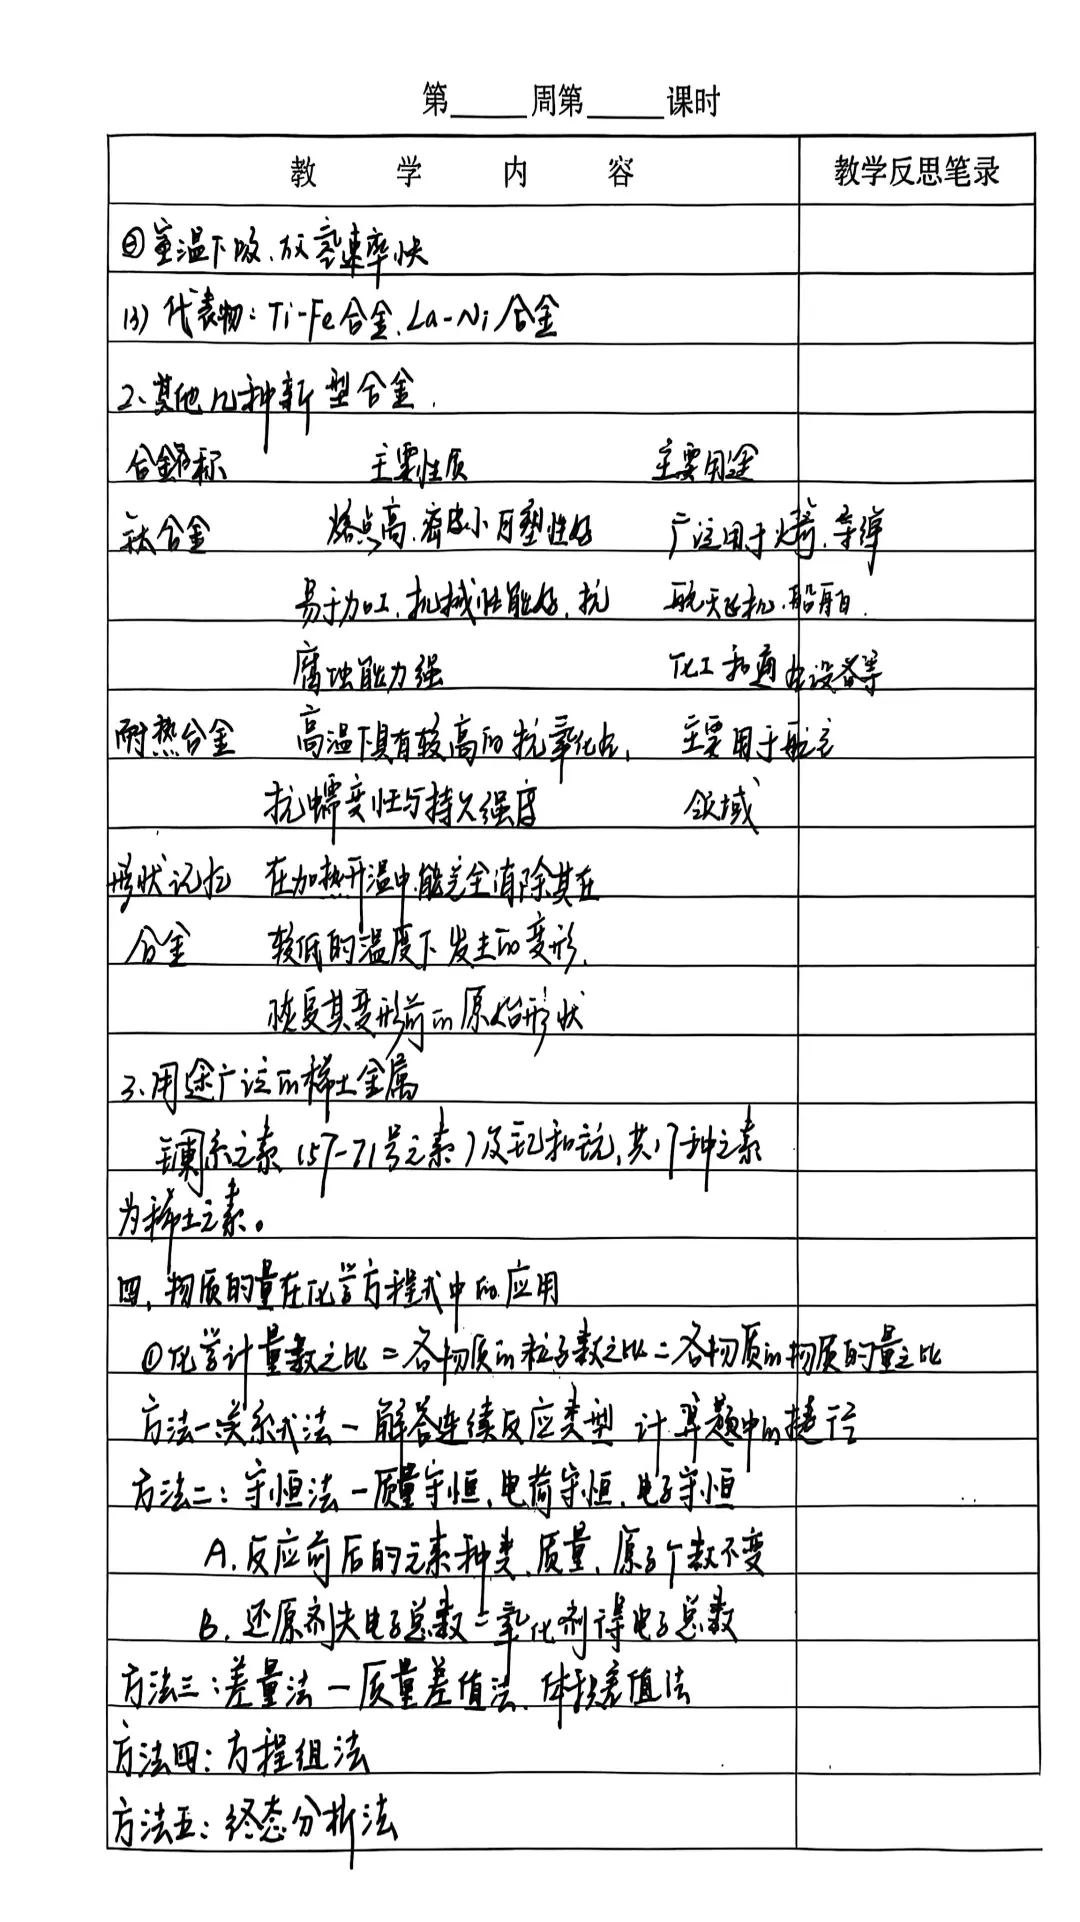 第____周第____课时
教 学 内 容 教学反思笔录
②室温下吸、放氢速率快
(3) 代表物：Ti-Fe合金、La-Ni合金
2、其他几种新型合金.
合金名称 主要性质 主要用途
钛合金 熔点高、密度小可塑性好 广泛用于火箭、导弹
易于加工、机械性能好、抗 航天飞机、船舶.
腐蚀能力强 化工和通电设备等
耐热合金 高温下具有较高的抗氧化性、 主要用于航空
抗蠕变性与持久强度 领域
形状记忆 在加热升温中能完全消除其在
合金 较低的温度下发生的变形.
恢复其变形前的原始形状
3、用途广泛的稀土金属
镧系元素（57-71号元素）及钇和钪,共17种元素
为稀土元素。
四、物质的量在化学方程式中的应用
①化学计量数之比=各物质的粒子数之比=各物质的物质的量之比
方法一:关系式法-解答连续反应类型 计算题中的捷径
方法二：守恒法-质量守恒、电荷守恒、电子守恒
A.反应前后的元素种类、质量、原子个数不变
B.还原剂失电子总数=氧化剂得电子总数
方法三：差量法-质量差值法、体积差值法
方法四：方程组法
方法五：终态分析法